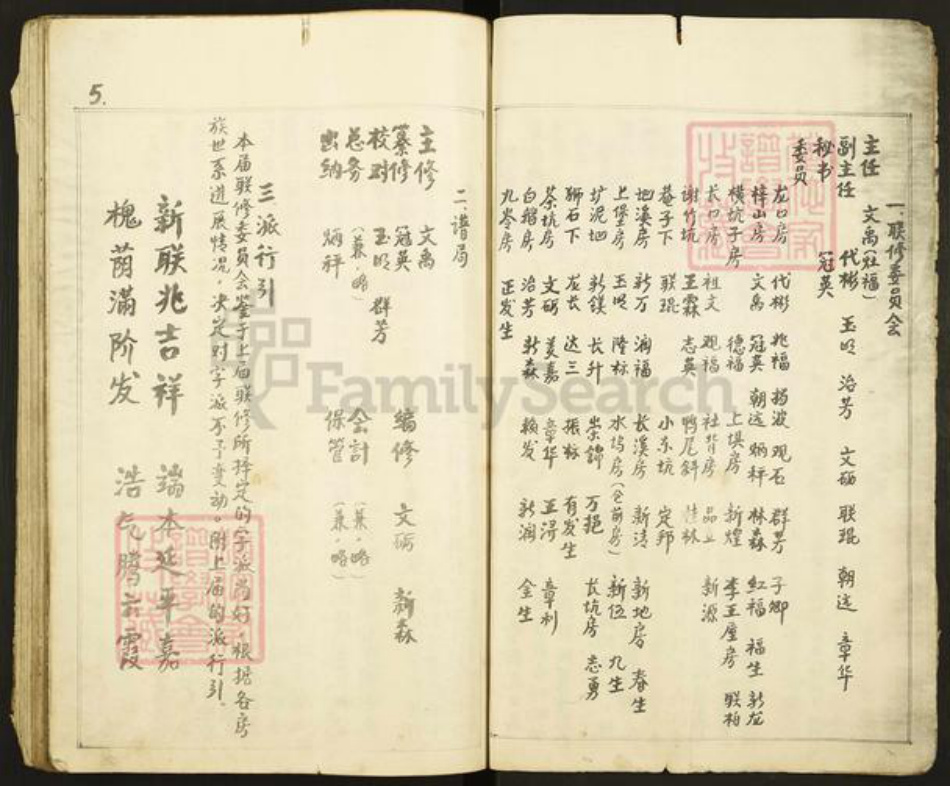 一、联修委员会
主任 文禹(社福)
副主任 代彬 玉明 治芳 文砺 联琨 朝远 章华
秘书 冠英
委员
龙口房 代彬 兆福 扬波 观石 群芳 子卿
梓山房 文禹 冠英 朝远 炳祥 林森 红福 福生 新龙
横坑子房 德福 上坝房 新煌 李王屋房 联柏
大口房 祖文 观福 社背房 新源
谢竹坑 玉霖 志英 鸭尾斜 桂林
菴子下 联琨 小东坑 定邦
地溪房 新万 润福 长溪房 新清 新地房 春生
上堡房 玉明 隆标 水坞房(仓前房) 新伍 九生
圹泥凹 新镁 长升 崇锦 万挹 长坑房 志勇
狮石下 左长 达三 振标 有发生
茶坑房 文砺 美嘉 章华 正浔 章利
白鹅房 治芳 新森 赖发 新润 金生
九岺房 正发生
二、谱局
主修 文禹
纂修 冠英 编修 文砺 新森
校对 玉明 群芳
总务 (兼·略) 会计 (兼·略)
出纳 炳祥 保管 (兼·略)
三 派行引
本届联修委员会鉴于上届联修所择定的字派尚好，根据各房
族世系进展情况，决定对字派不予变动。附上届的派行引。
新联兆吉祥 端本延平嘉
槐荫满阶发 浩气腾云霞
5.
FamilySearch